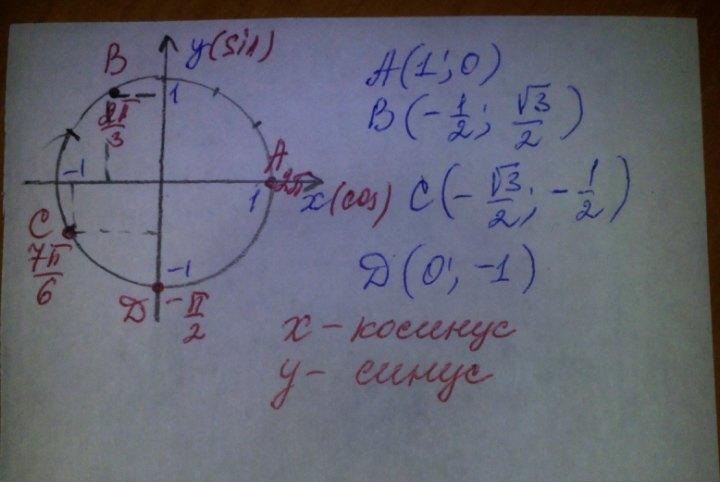 y(sin)
B
1
2π/3
A
-1
2π
1
x(cos)
C
7π/6
-1
D
-π/2
A(1; 0)
B(-1/2; √3/2)
C(-√3/2; -1/2)
D(0; -1)
x - косинус
y - синус